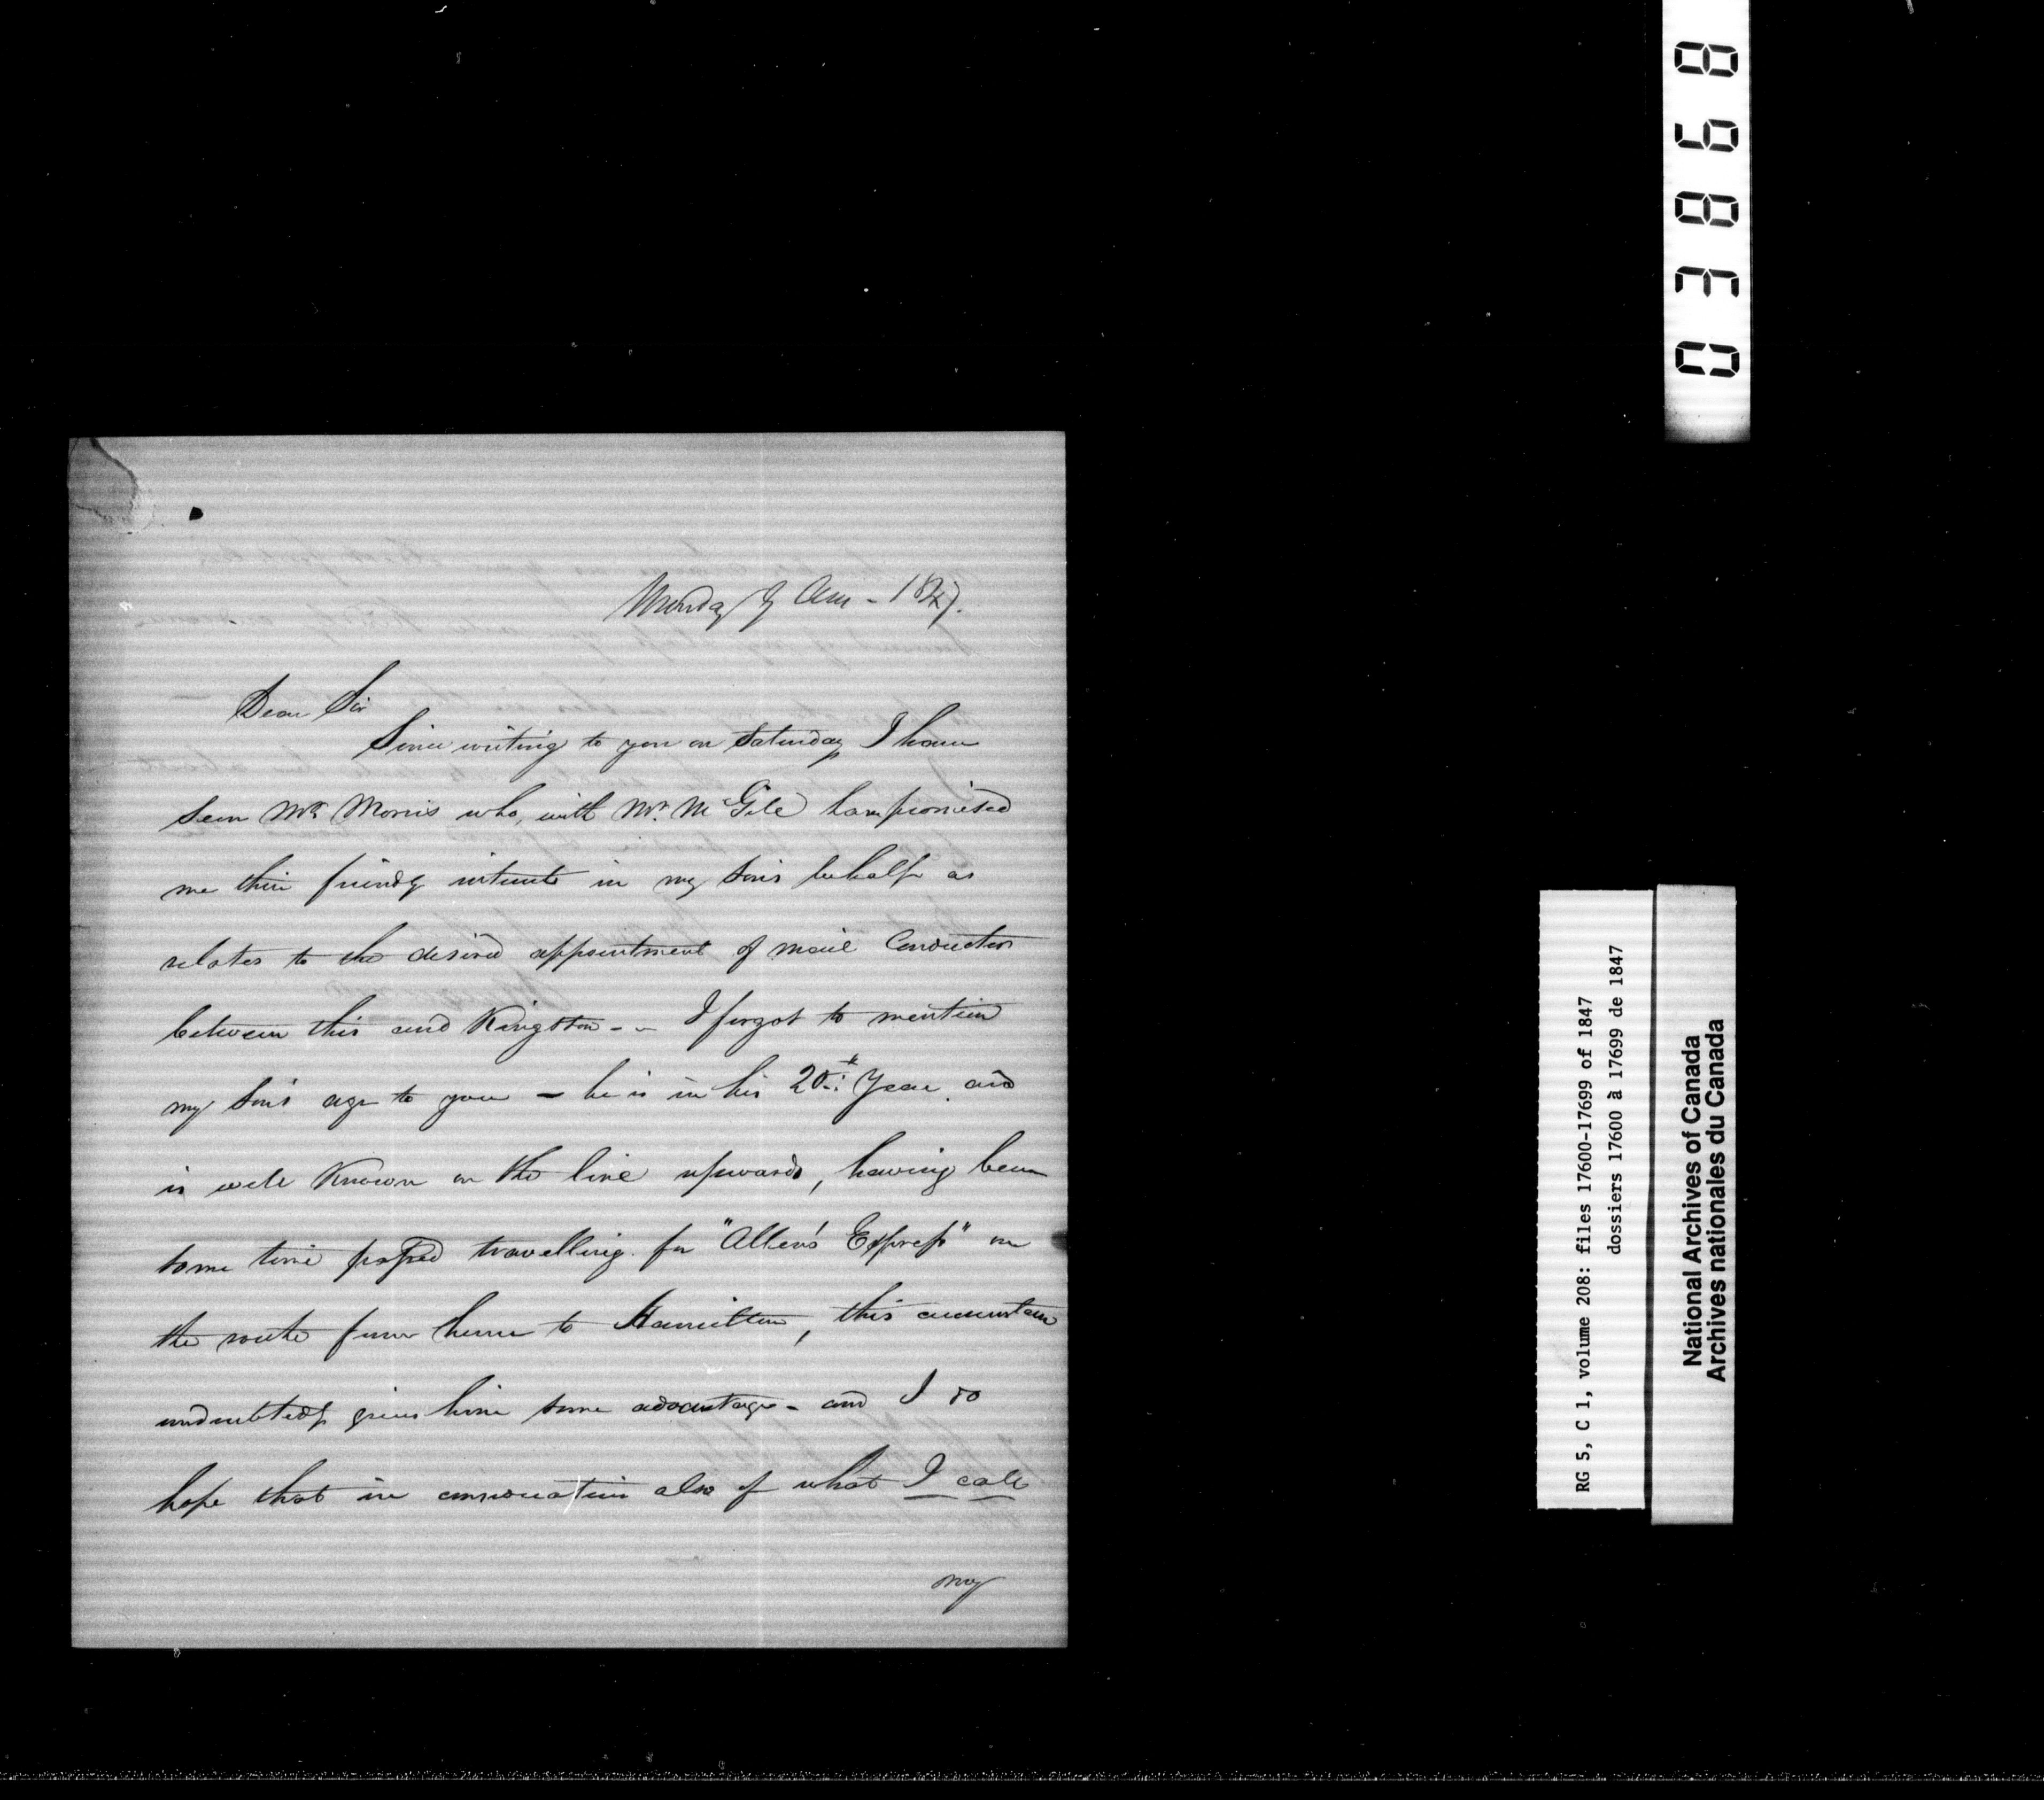 Monday 7 Am - 1847.
Dear Sir
Since writing to you on Saturday I have
seen Mr. Morris who, with Mr. McGill have promised
me their friendly interest in my son's behalf as
relates to the desired appointment of mail Conductor
between this and Kingston - - I forgot to mention
my son's age to you - he is in his 20th Year and
is well Known on the line upwards, having been
some time passed travelling for "Allen's Express" on
the route from here to Hamilton, this circumstance
undoubtedly gives him some advantage - and I do
hope that in consideration also of what I call
my
03868
RG 5, C 1, volume 208: files 17600-17699 of 1847
dossiers 17600 à 17699 de 1847
National Archives of Canada
Archives nationales du Canada